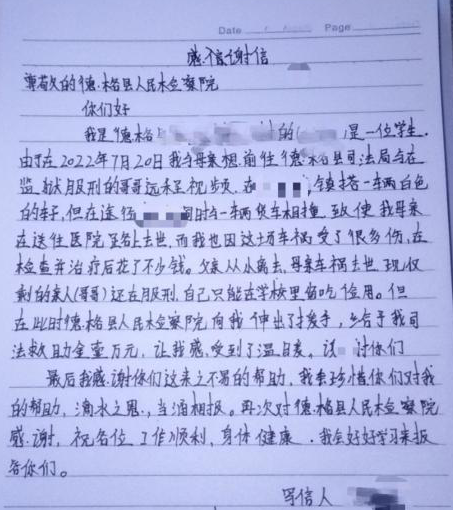 Date Page
感信谢信
尊敬的德格县人民检察院
你们好
我是德格 的( )是一位学生.
由于在2022年7月20日我与母亲想前往德格县司法局与在
监狱服刑的哥哥远程视频,在 镇搭一辆白色
的车子,但在途径 同时与一辆货车相撞 致使我母亲
在送往医院 上去世,而我也因这场车祸受了很多伤,在
检查并治疗后花了不少钱。父亲从小离去,母亲车祸去世 现仅
剩的亲人(哥哥)还在服刑,自己只能在学校里省吃俭用。但
在此时德格县人民检察院向我伸出了援手,给于我司
法救助金壹万元,让我感受到了温暖。 你们
最后我感谢你们这来之不易的帮助,我会珍惜你们对我
的帮助,滴水之恩,当涌相报。再次对德格县人民检察院
感谢,祝各位工作顺利,身体健康.我会好好学习来报
答你们。
写信人